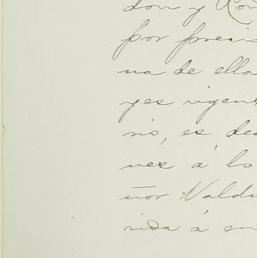 don y Con
por preci
na de ella
yes vigen
no, es dec
ves á lo
ñor Valdi
rida á en